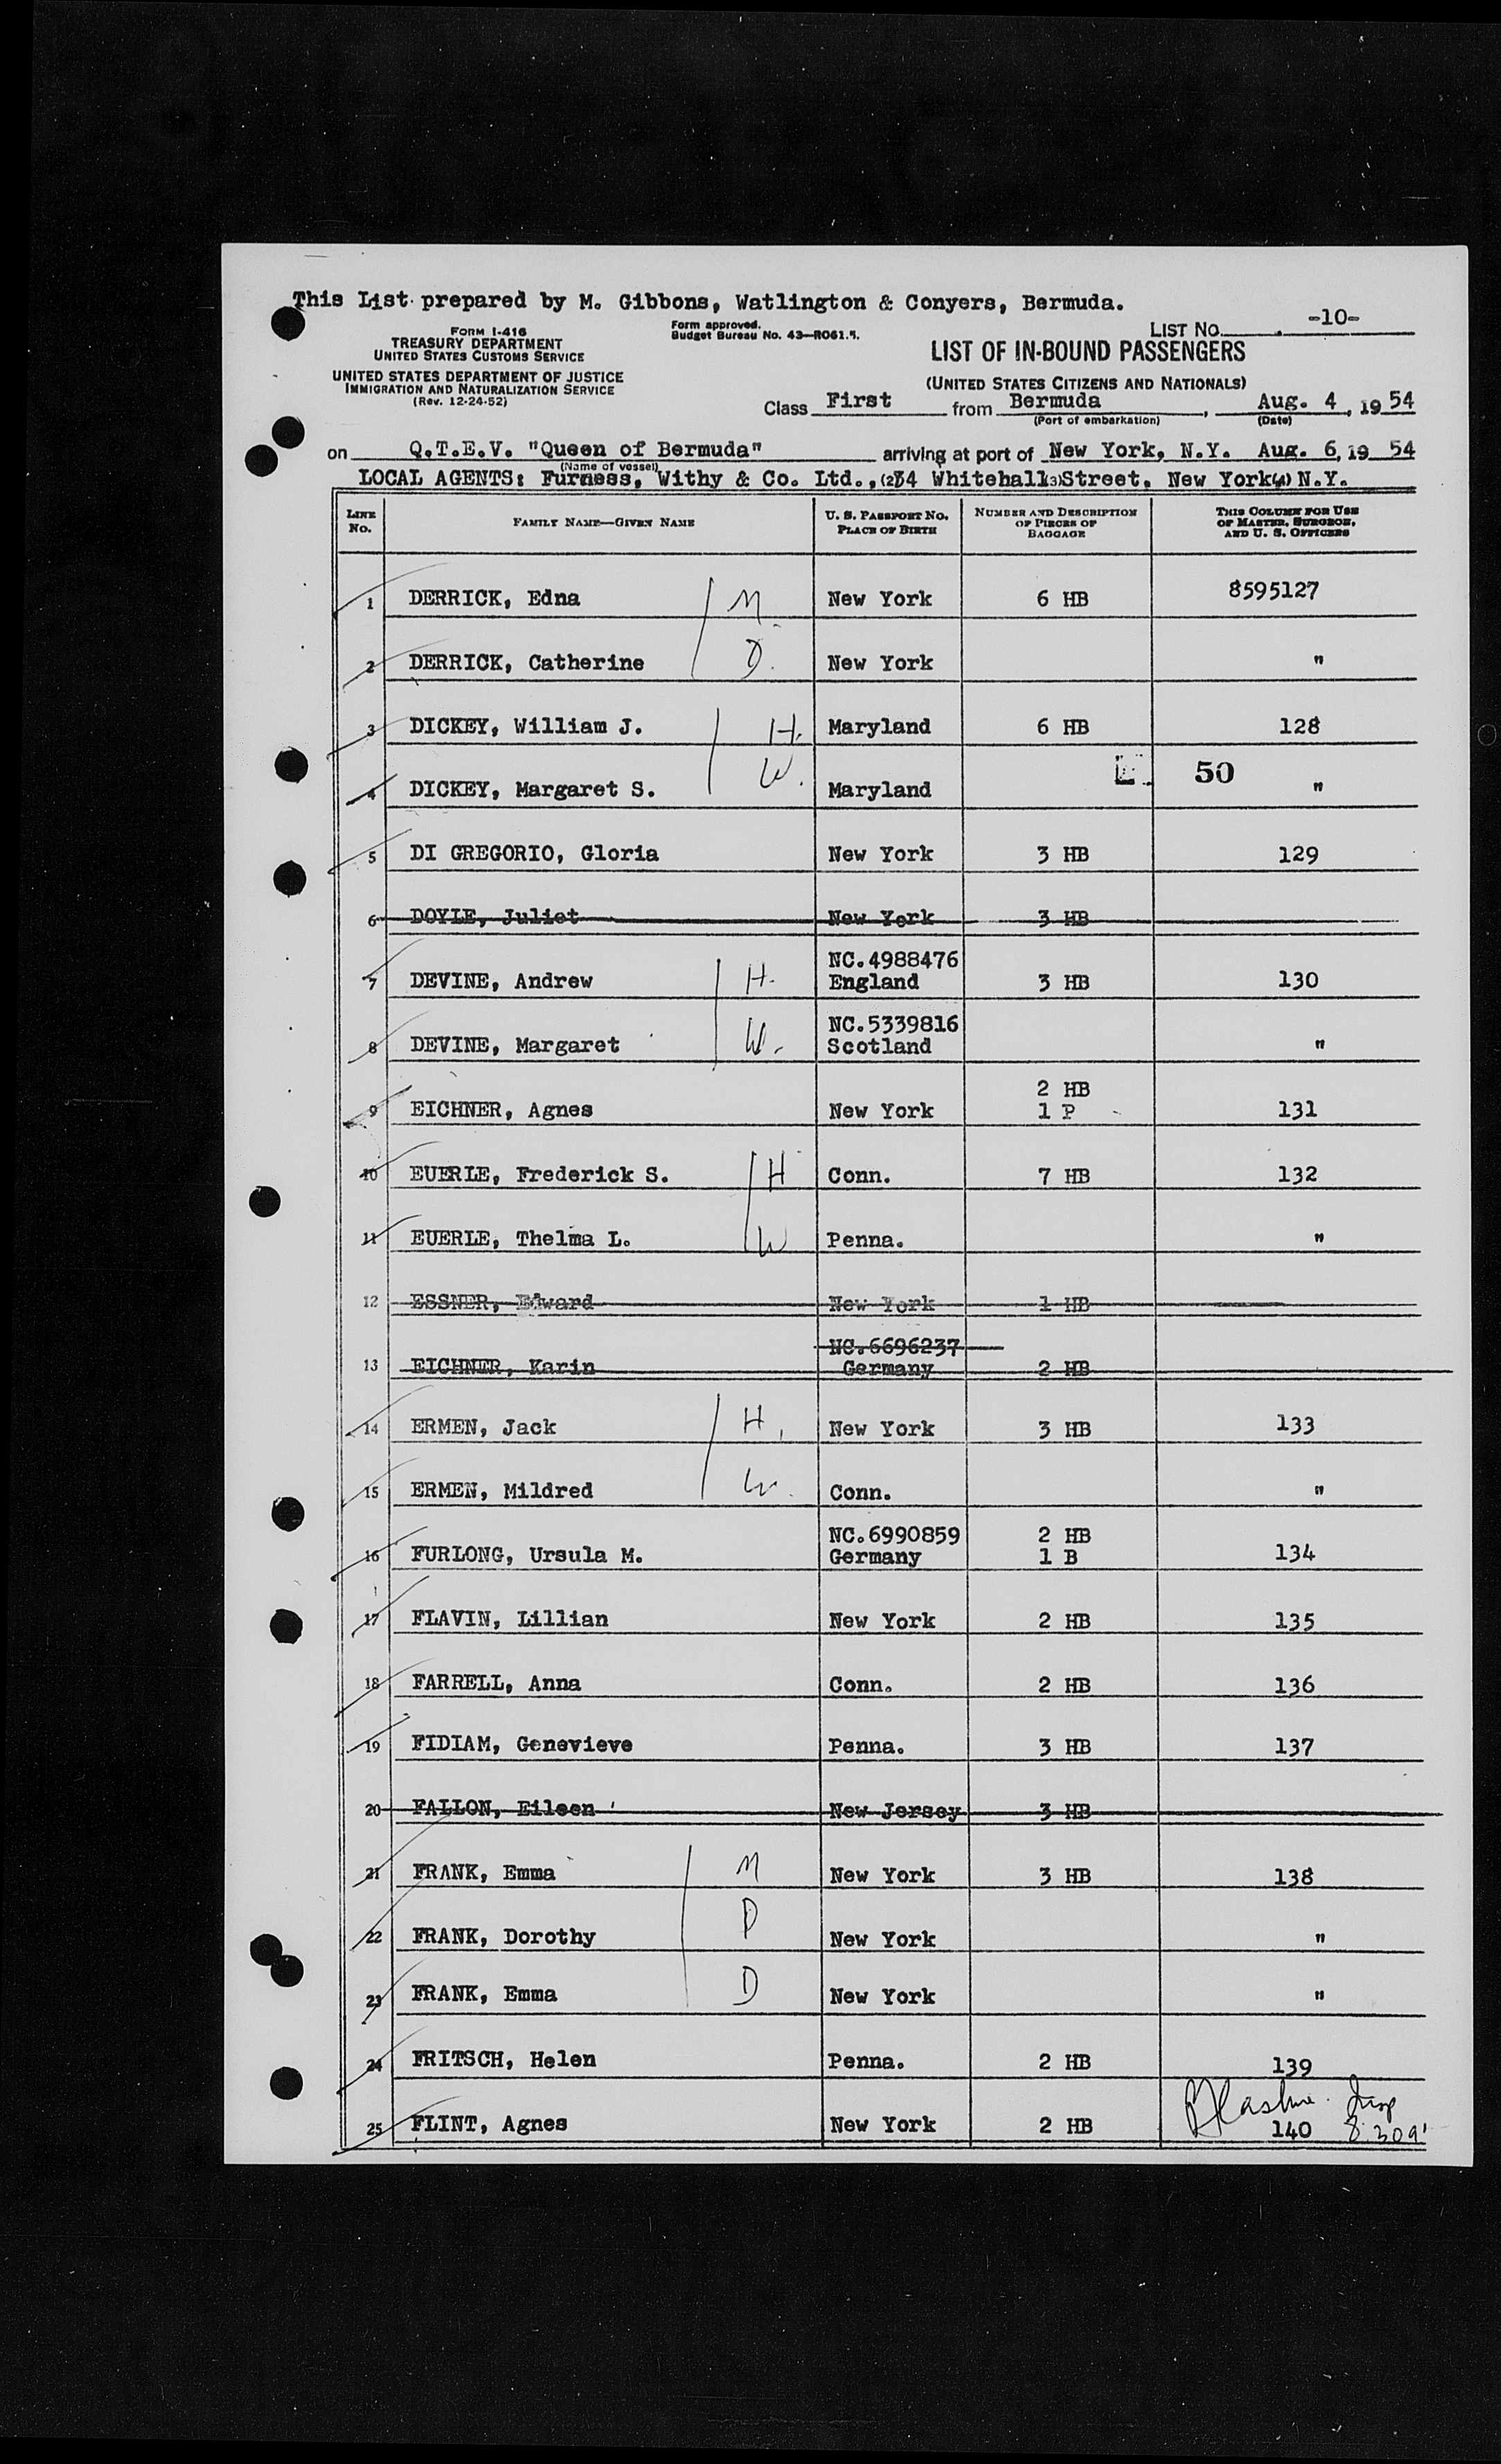 This List prepared by M. Gibbons, Watlington & Conyers, Bermuda.
FORM I-416
TREASURY DEPARTMENT
UNITED STATES CUSTOMS SERVICE
UNITED STATES DEPARTMENT OF JUSTICE
IMMIGRATION AND NATURALIZATION SERVICE
(Rev. 12-24-52)
Form approved.
Budget Bureau No. 43—R061.5.
LIST NO. -10-
LIST OF IN-BOUND PASSENGERS
(UNITED STATES CITIZENS AND NATIONALS)
Class First from Bermuda, Aug. 4, 1954
(Port of embarkation) (Date)
on Q.T.E.V. "Queen of Bermuda" arriving at port of New York, N.Y. Aug. 6, 19 54
(Name of vessel)
LOCAL AGENTS: Furness, Withy & Co. Ltd., (2)34 Whitehall(3)Street, New York(4) N.Y.
LINE No. FAMILY NAME—GIVEN NAME U. S. PASSPORT NO. PLACE OF BIRTH NUMBER AND DESCRIPTION OF PIECES OF BAGGAGE THIS COLUMN FOR USE OF MASTER, SURGEON, AND U. S. OFFICERS
1 DERRICK, Edna M. New York 6 HB 8595127
2 DERRICK, Catherine D. New York "
3 DICKEY, William J. H. Maryland 6 HB 128
4 DICKEY, Margaret S. W. Maryland 50 "
5 DI GREGORIO, Gloria New York 3 HB 129
6 DOYLE, Juliet New York 3 HB
7 DEVINE, Andrew H. NC.4988476 England 3 HB 130
8 DEVINE, Margaret W. NC.5339816 Scotland "
9 EICHNER, Agnes New York 2 HB 1 P 131
10 EUERLE, Frederick S. H Conn. 7 HB 132
11 EUERLE, Thelma L. W Penna. "
12 ESSNER, Edward New York 1 HB
13 EICHNER, Karin NC.6696237 Germany 2 HB
14 ERMEN, Jack H. New York 3 HB 133
15 ERMEN, Mildred W. Conn. "
16 FURLONG, Ursula M. NC.6990859 Germany 2 HB 1 B 134
17 FLAVIN, Lillian New York 2 HB 135
18 FARRELL, Anna Conn. 2 HB 136
19 FIDIAM, Genevieve Penna. 3 HB 137
20 FALLON, Eileen New Jersey 3 HB
21 FRANK, Emma M New York 3 HB 138
22 FRANK, Dorothy D New York "
23 FRANK, Emma D New York "
24 FRITSCH, Helen Penna. 2 HB 139
25 FLINT, Agnes New York 2 HB 140